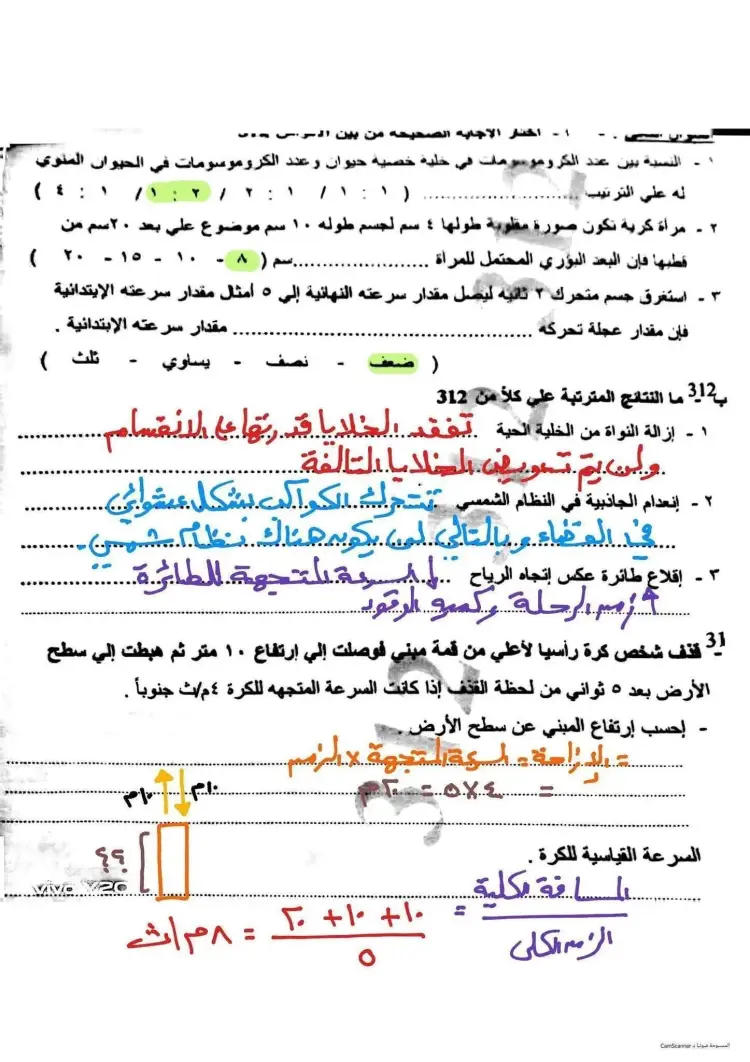 ١ - اختار الاجابة الصحيحة من بين
١ - النسبة بين عدد الكروموسومات في خلية خصية حيوان وعدد الكروموسومات في الحيوان المنوي
له علي الترتيب .................... ( ١ : ١ / ١ : ٢ / ٢ : ١ / ١ : ٤ )
٢ - مرأة كرية تكون صورة مقلوبة طولها ٤ سم لجسم طوله ١٠ سم موضوع علي بعد ٢٠سم من
قطبها فإن البعد البؤري المحتمل للمرأة ....................سم ( ٨ - ١٠ - ١٥ - ٢٠ )
٣ - استغرق جسم متحرك ٢ ثانية ليصل مقدار سرعته النهائية إلي ٥ أمثال مقدار سرعته الإبتدائية
فإن مقدار عجلة تحركه .................... مقدار سرعته الإبتدائية .
( ضعف - نصف - يساوي - ثلث )
ب-312 ما النتائج المترتبة علي كلاً من 312
١ - إزالة النواة من الخلية الحية تفقد الخلايا قدرتها على الانقسام
ولن يتم تعويض الخلايا التالفة
٢ - إنعدام الجاذبية في النظام الشمسي تتحرك الكواكب بشكل عشوائي
في الفضاء وبالتالي لن يكون هناك نظام شمسي.
٣ - إقلاع طائرة عكس إتجاه الرياح ↓ السرعة المتجهة للطائرة
↑ زمن الرحلة وكمية الوقود
31- قذف شخص كرة رأسيا لأعلي من قمة مبني فوصلت إلي إرتفاع ١٠ متر ثم هبطت إلي سطح
الأرض بعد ٥ ثواني من لحظة القذف إذا كانت السرعة المتجهه للكرة ٤م/ث جنوباً .
- إحسب إرتفاع المبني عن سطح الأرض .
= الإزاحة = السرعة المتجهة × الزمن
= ٤ × ٥ = ٢٠ م
١٠م ١٠م
السرعة القياسية للكرة .
؟؟
vivo Y20
المسافة الكلية
الزمن الكلى
= ١٠ + ١٠ + ٢٠
٥
= ٨ م/ث
312
312
312
الممسوحة ضوئيا بـ CamScanner